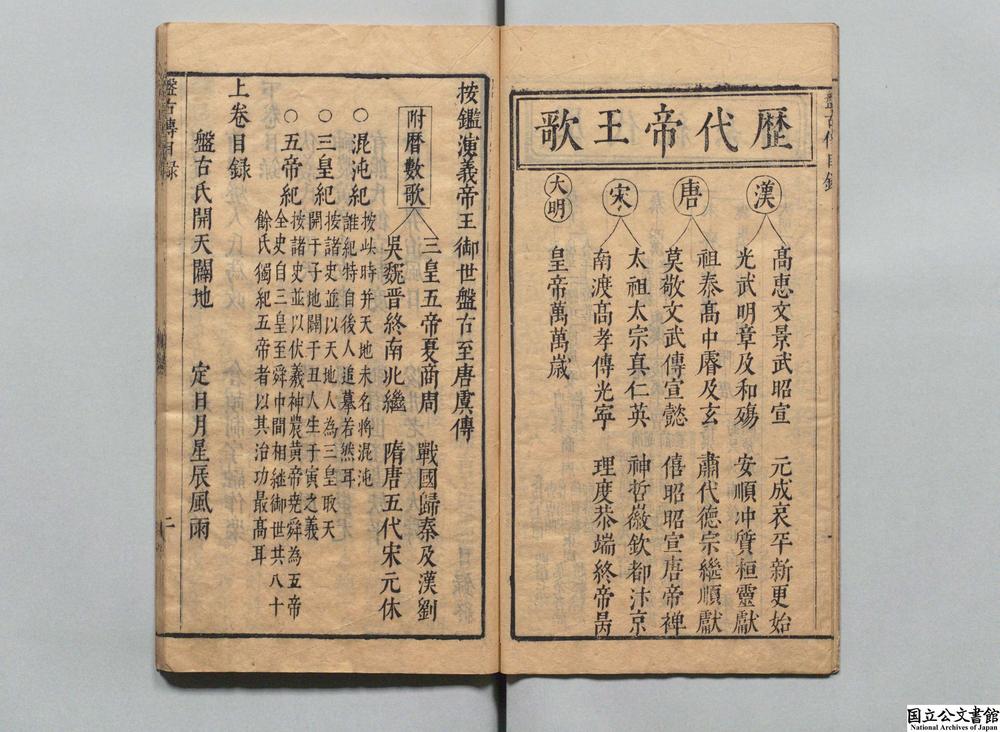 歷代帝王歌
漢
高惠文景武昭宣 元成哀平新更始
光武明章及和殤 安順冲質桓靈獻
唐
祖泰高中睿及玄 肅代德宗繼順獻
莫敬文武傳宣懿 僖昭昭宣唐帝禪
宋
太祖太宗真仁英 神哲徽欽都汴京
南渡高孝傳光寧 理度恭端終帝昺
大明
皇帝萬萬歲
盤古傳目錄
按鑑演義帝王御世盤古至唐虞傳
附曆數歌
三皇五帝夏商周 戰國歸秦及漢劉
吳魏晉終南北繼 隋唐五代宋元休
○混沌紀 按此時并天地未名將混沌
誰紀特自後人追摹若然耳
○三皇紀 按諸史並以天地人為三皇取天
開于子地闢于丑人生于寅之義
○五帝紀 按諸史並以伏羲神農黄帝尭舜為五帝
全史自三皇至舜中間相継御世共八十
餘氏獨紀五帝者以其治功最高耳
上卷目錄
盤古氏開天闢地 定日月星辰風雨
盤古傳目錄
二
国立公文書館
National Archives of Japan